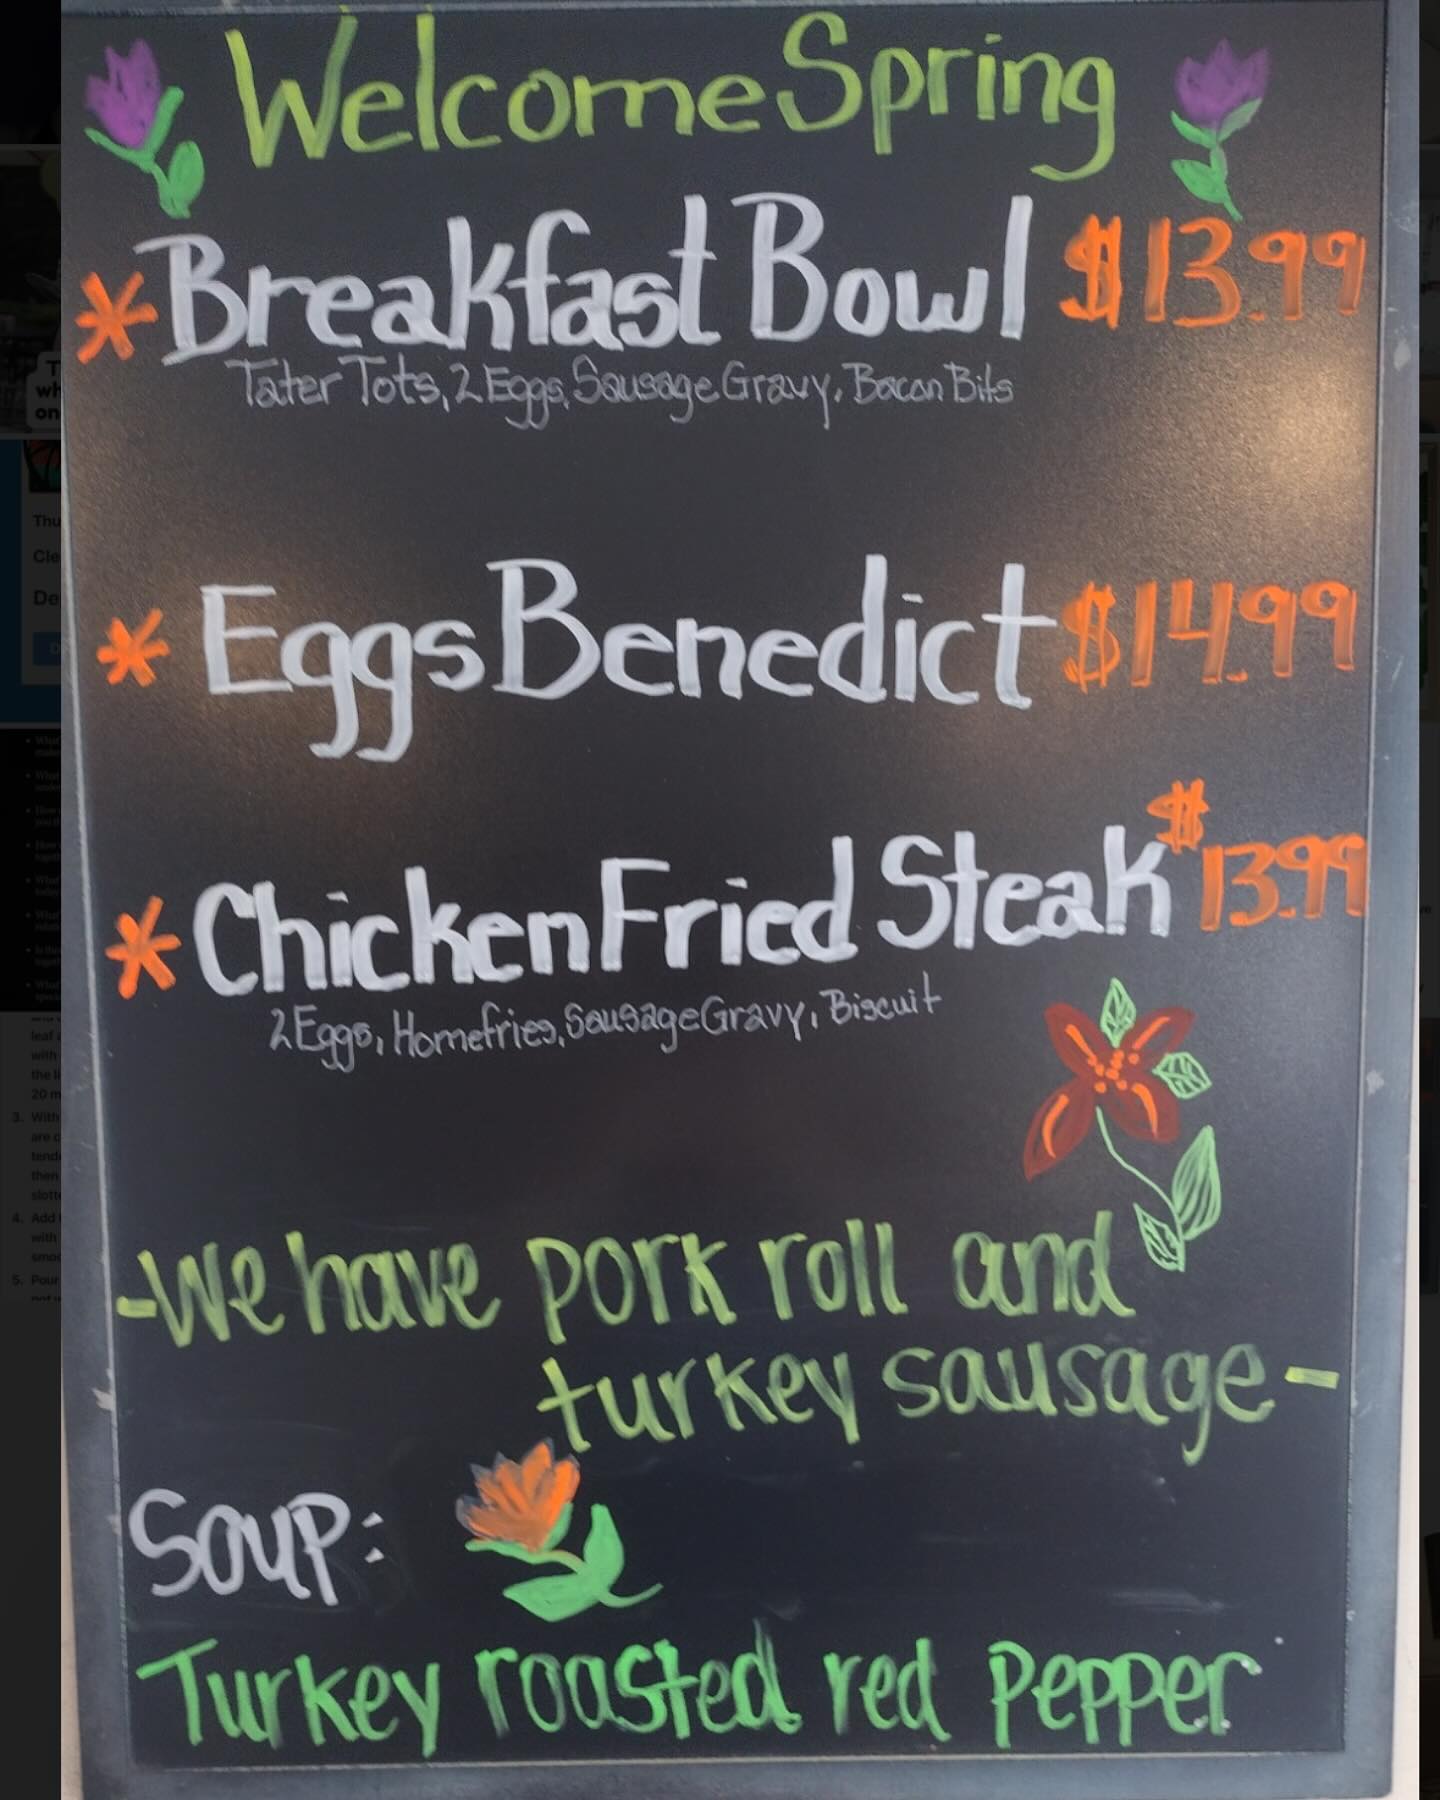 Welcome Spring
* Breakfast Bowl $13.99
Tater Tots, 2 Eggs, Sausage Gravy, Bacon Bits
* Eggs Benedict $14.99
* Chicken Fried Steak $13.99
2 Eggs, Homefries, Sausage Gravy, Biscuit
-We have pork roll and
turkey sausage-
Soup:
Turkey roasted red pepper